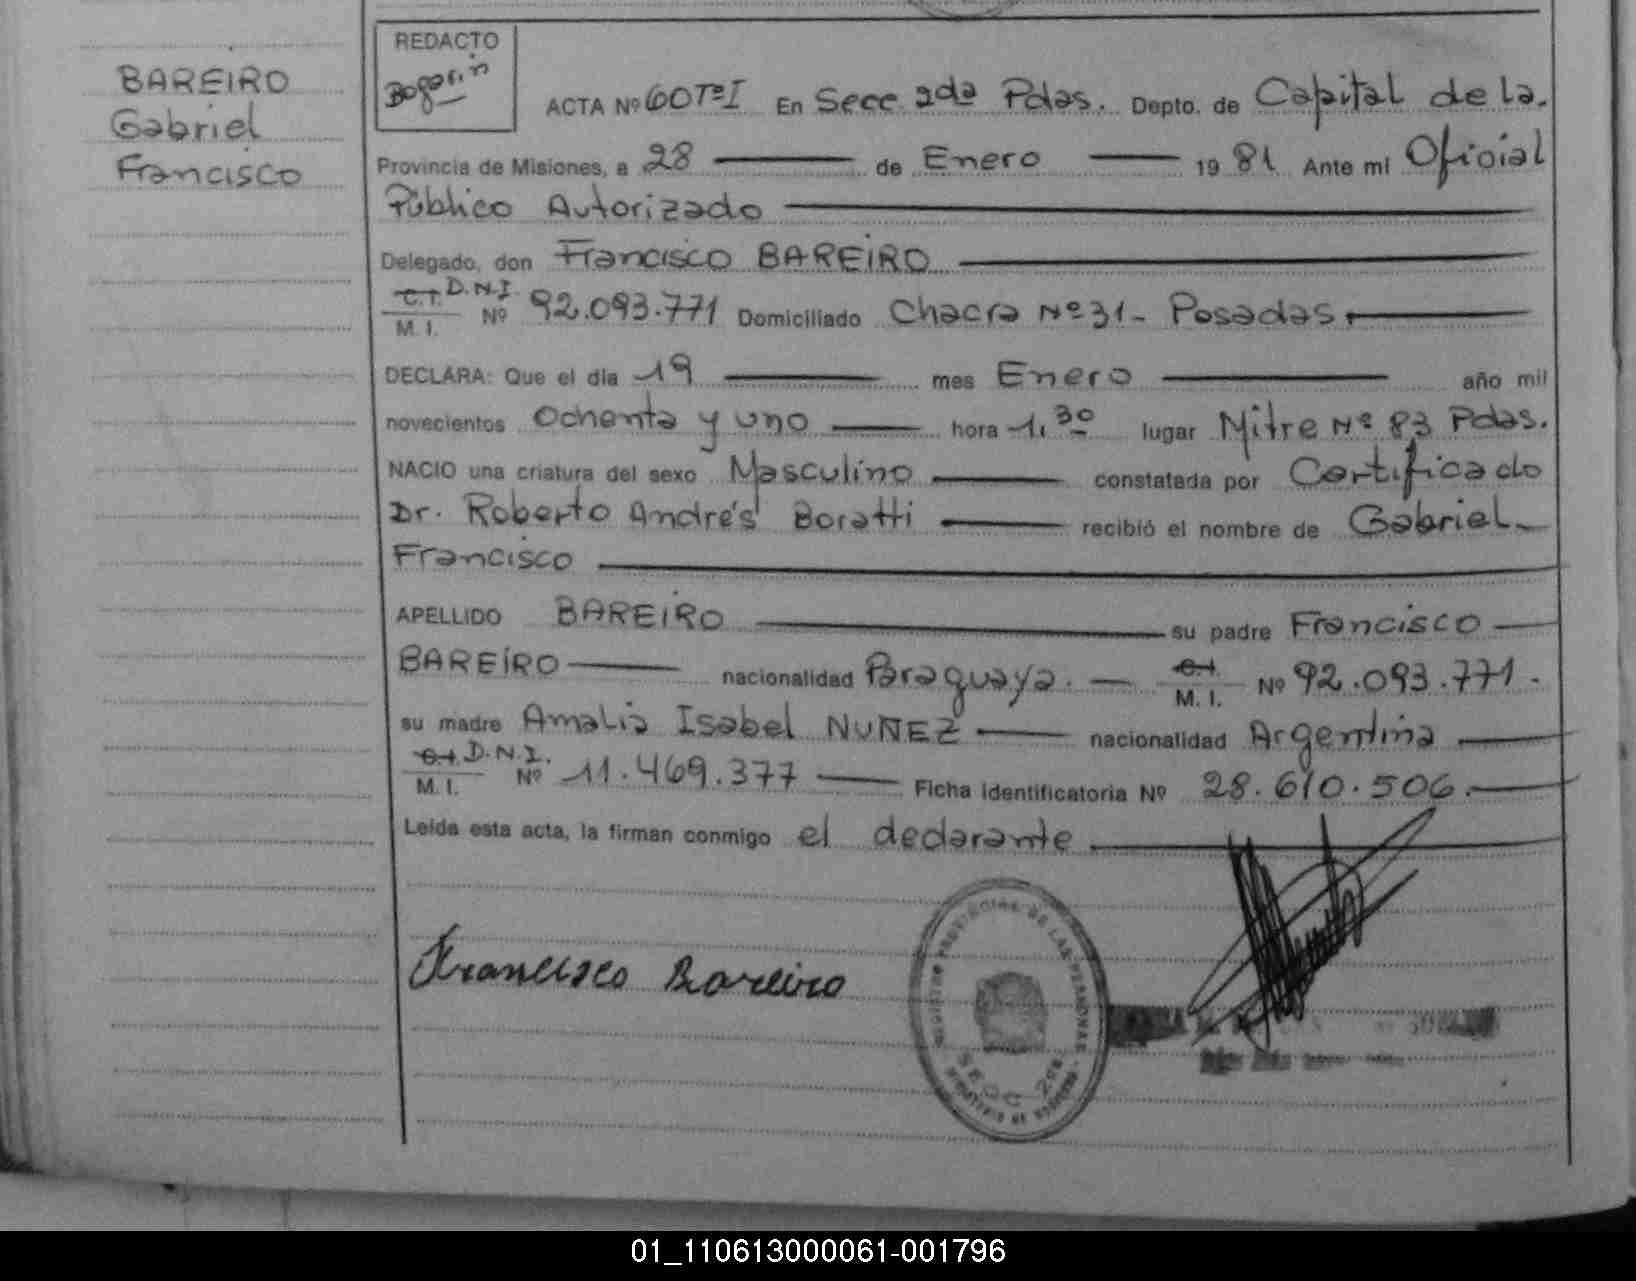 BAREIRO
Gabriel
Francisco
REDACTO
Bogarin
ACTA Nº 60TºI En Secc 2da Pdas. Depto. de Capital de la.
Provincia de Misiones, a 28 de Enero 1981 Ante mi Oficial
Público Autorizado
Delegado, don Francisco BAREIRO
C.I. D.N.I.
M. I. Nº 92.093.771 Domiciliado Chacra Nº 31 - Posadas.
DECLARA: Que el día 19 mes Enero año mil
novecientos Ochenta y uno hora 1.30 lugar Mitre Nº 83 Pdas.
NACIO una criatura del sexo Masculino constatada por Certificado
Dr. Roberto Andrés Boratti recibió el nombre de Gabriel
Francisco
APELLIDO BAREIRO su padre Francisco
BAREIRO nacionalidad Paraguaya. C.I.
M. I. Nº 92.093.771.
su madre Amalia Isabel NUÑEZ nacionalidad Argentina
C.I. D.N.I.
M. I. Nº 11.469.377 Ficha identificatoria Nº 28.610.506.
Leída esta acta, la firman conmigo el declarante
Francisco Bareiro
REGISTRO PROVINCIAL DE LAS PERSONAS
SECC 2da
01_110613000061-001796